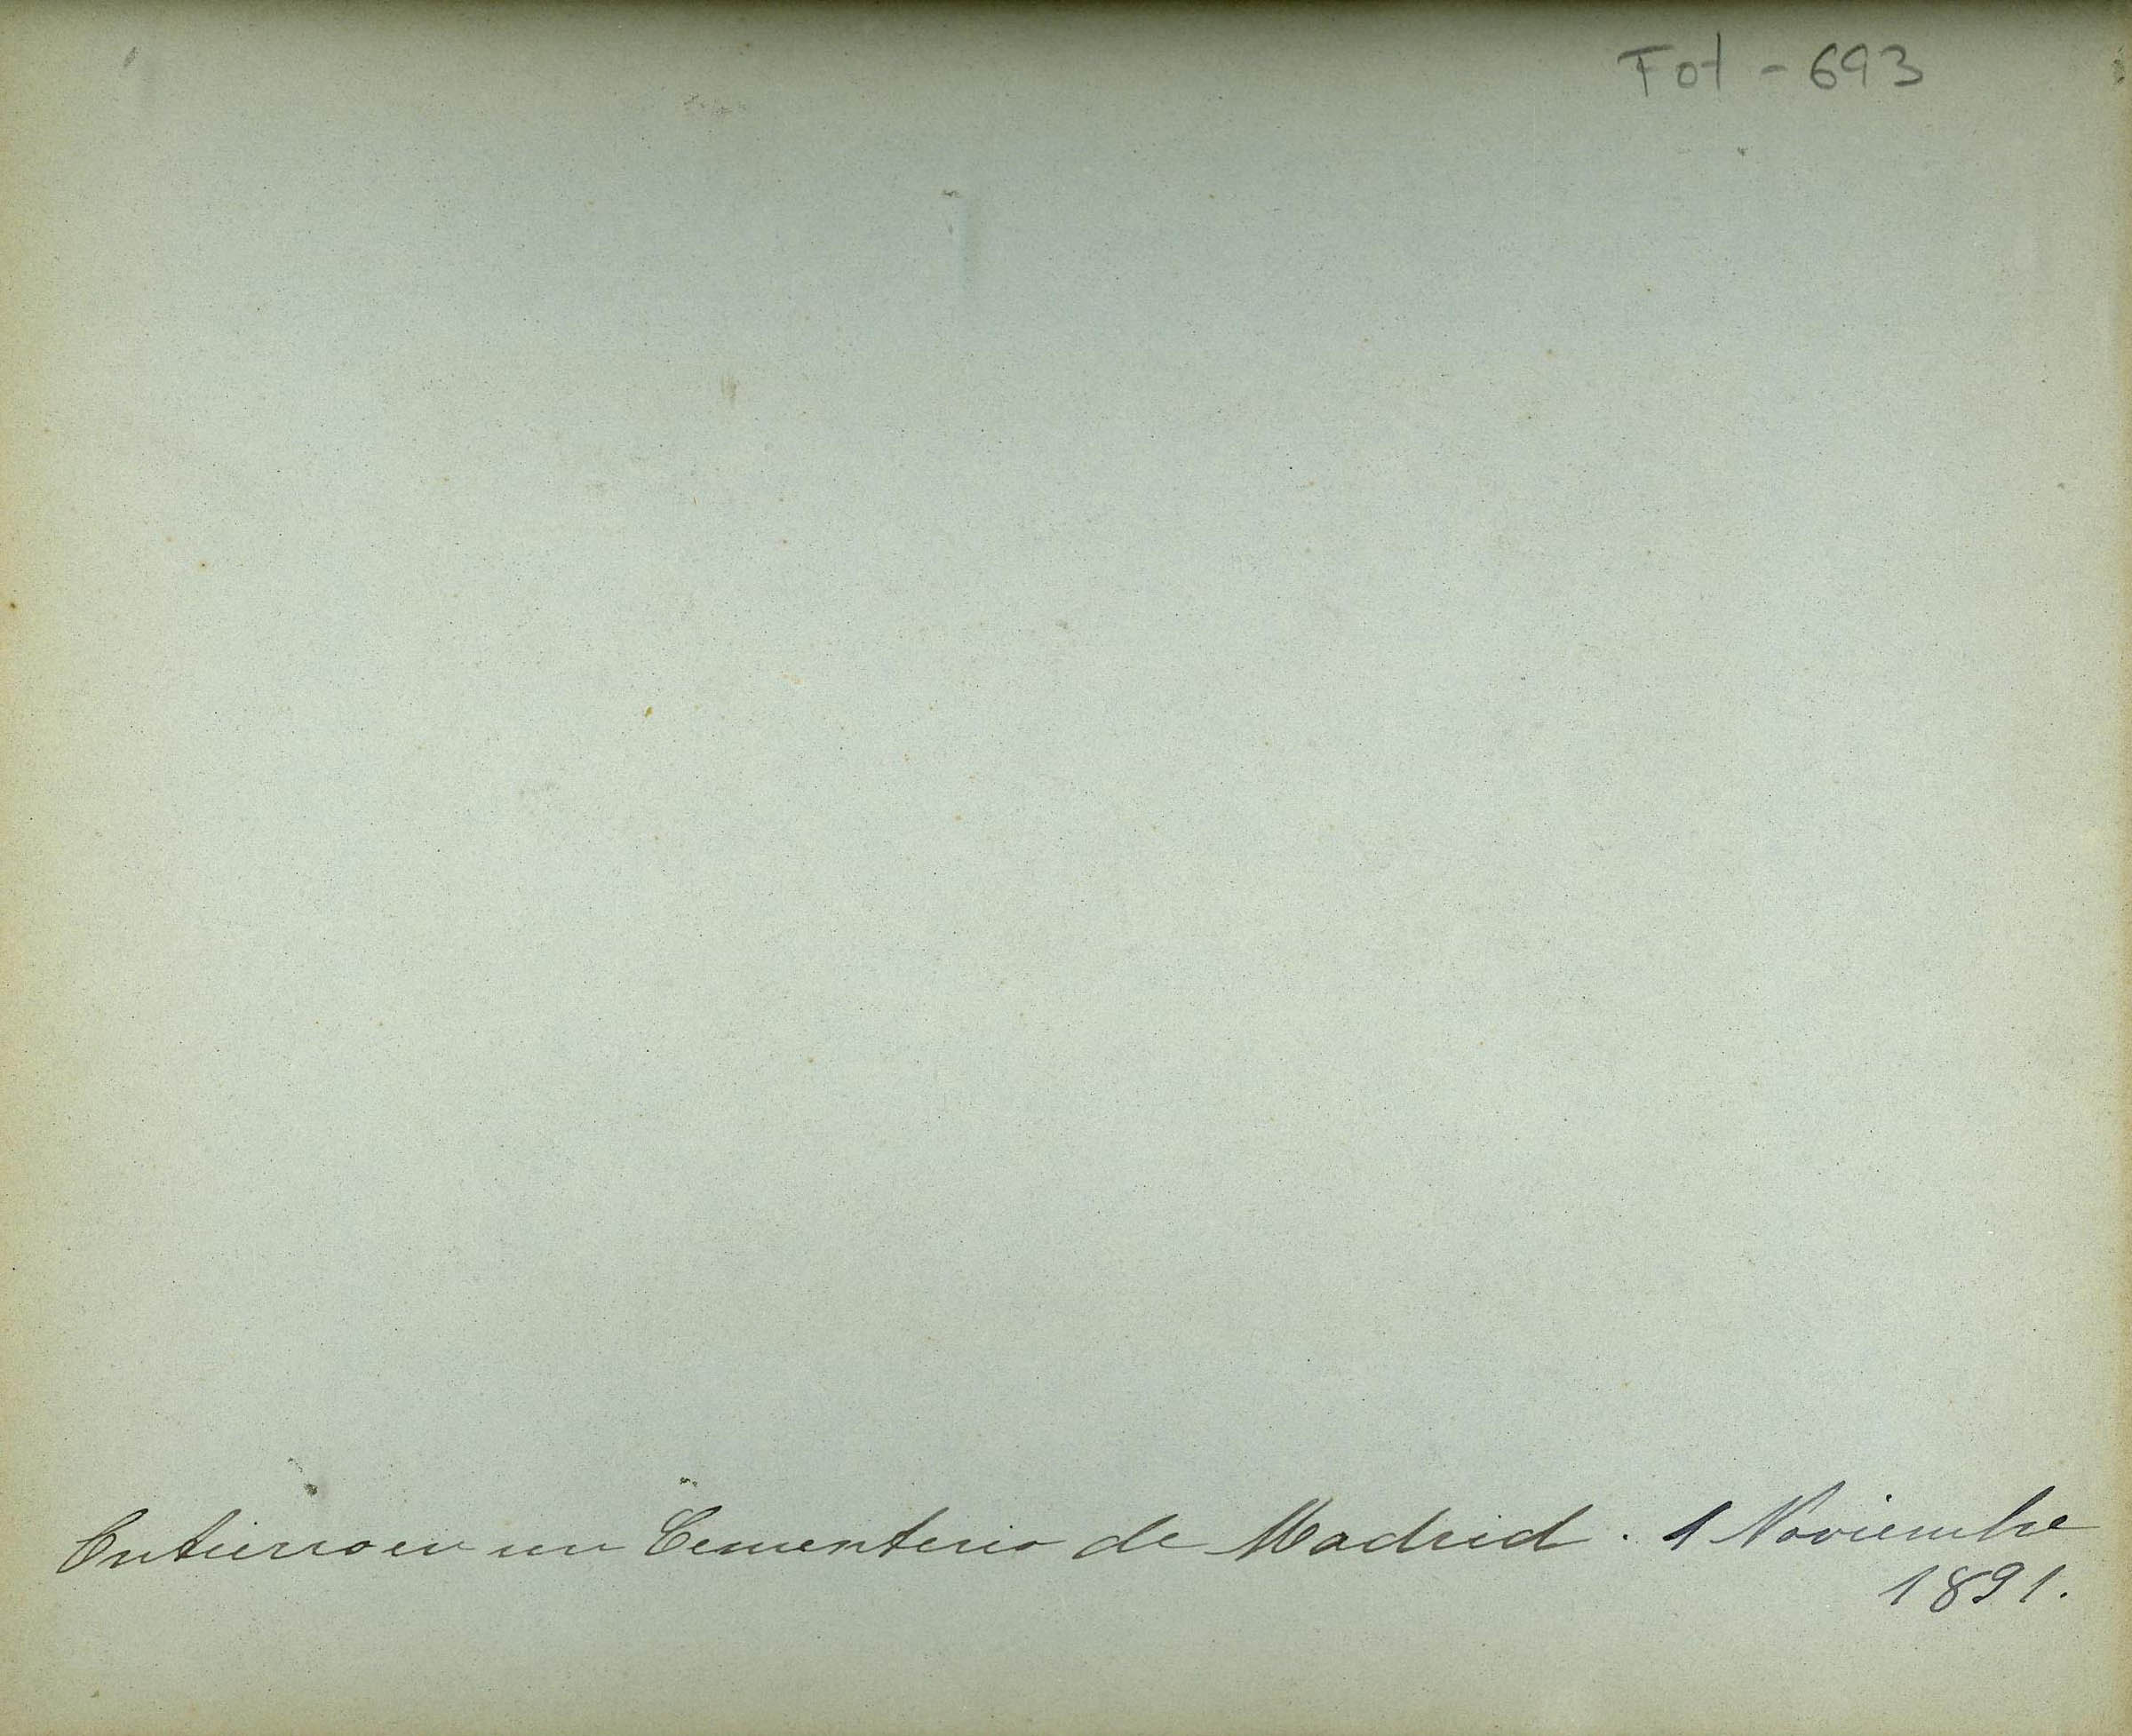 Fot - 693
Entierro en un Cementerio de Madrid. 1 Noviembre
1891.